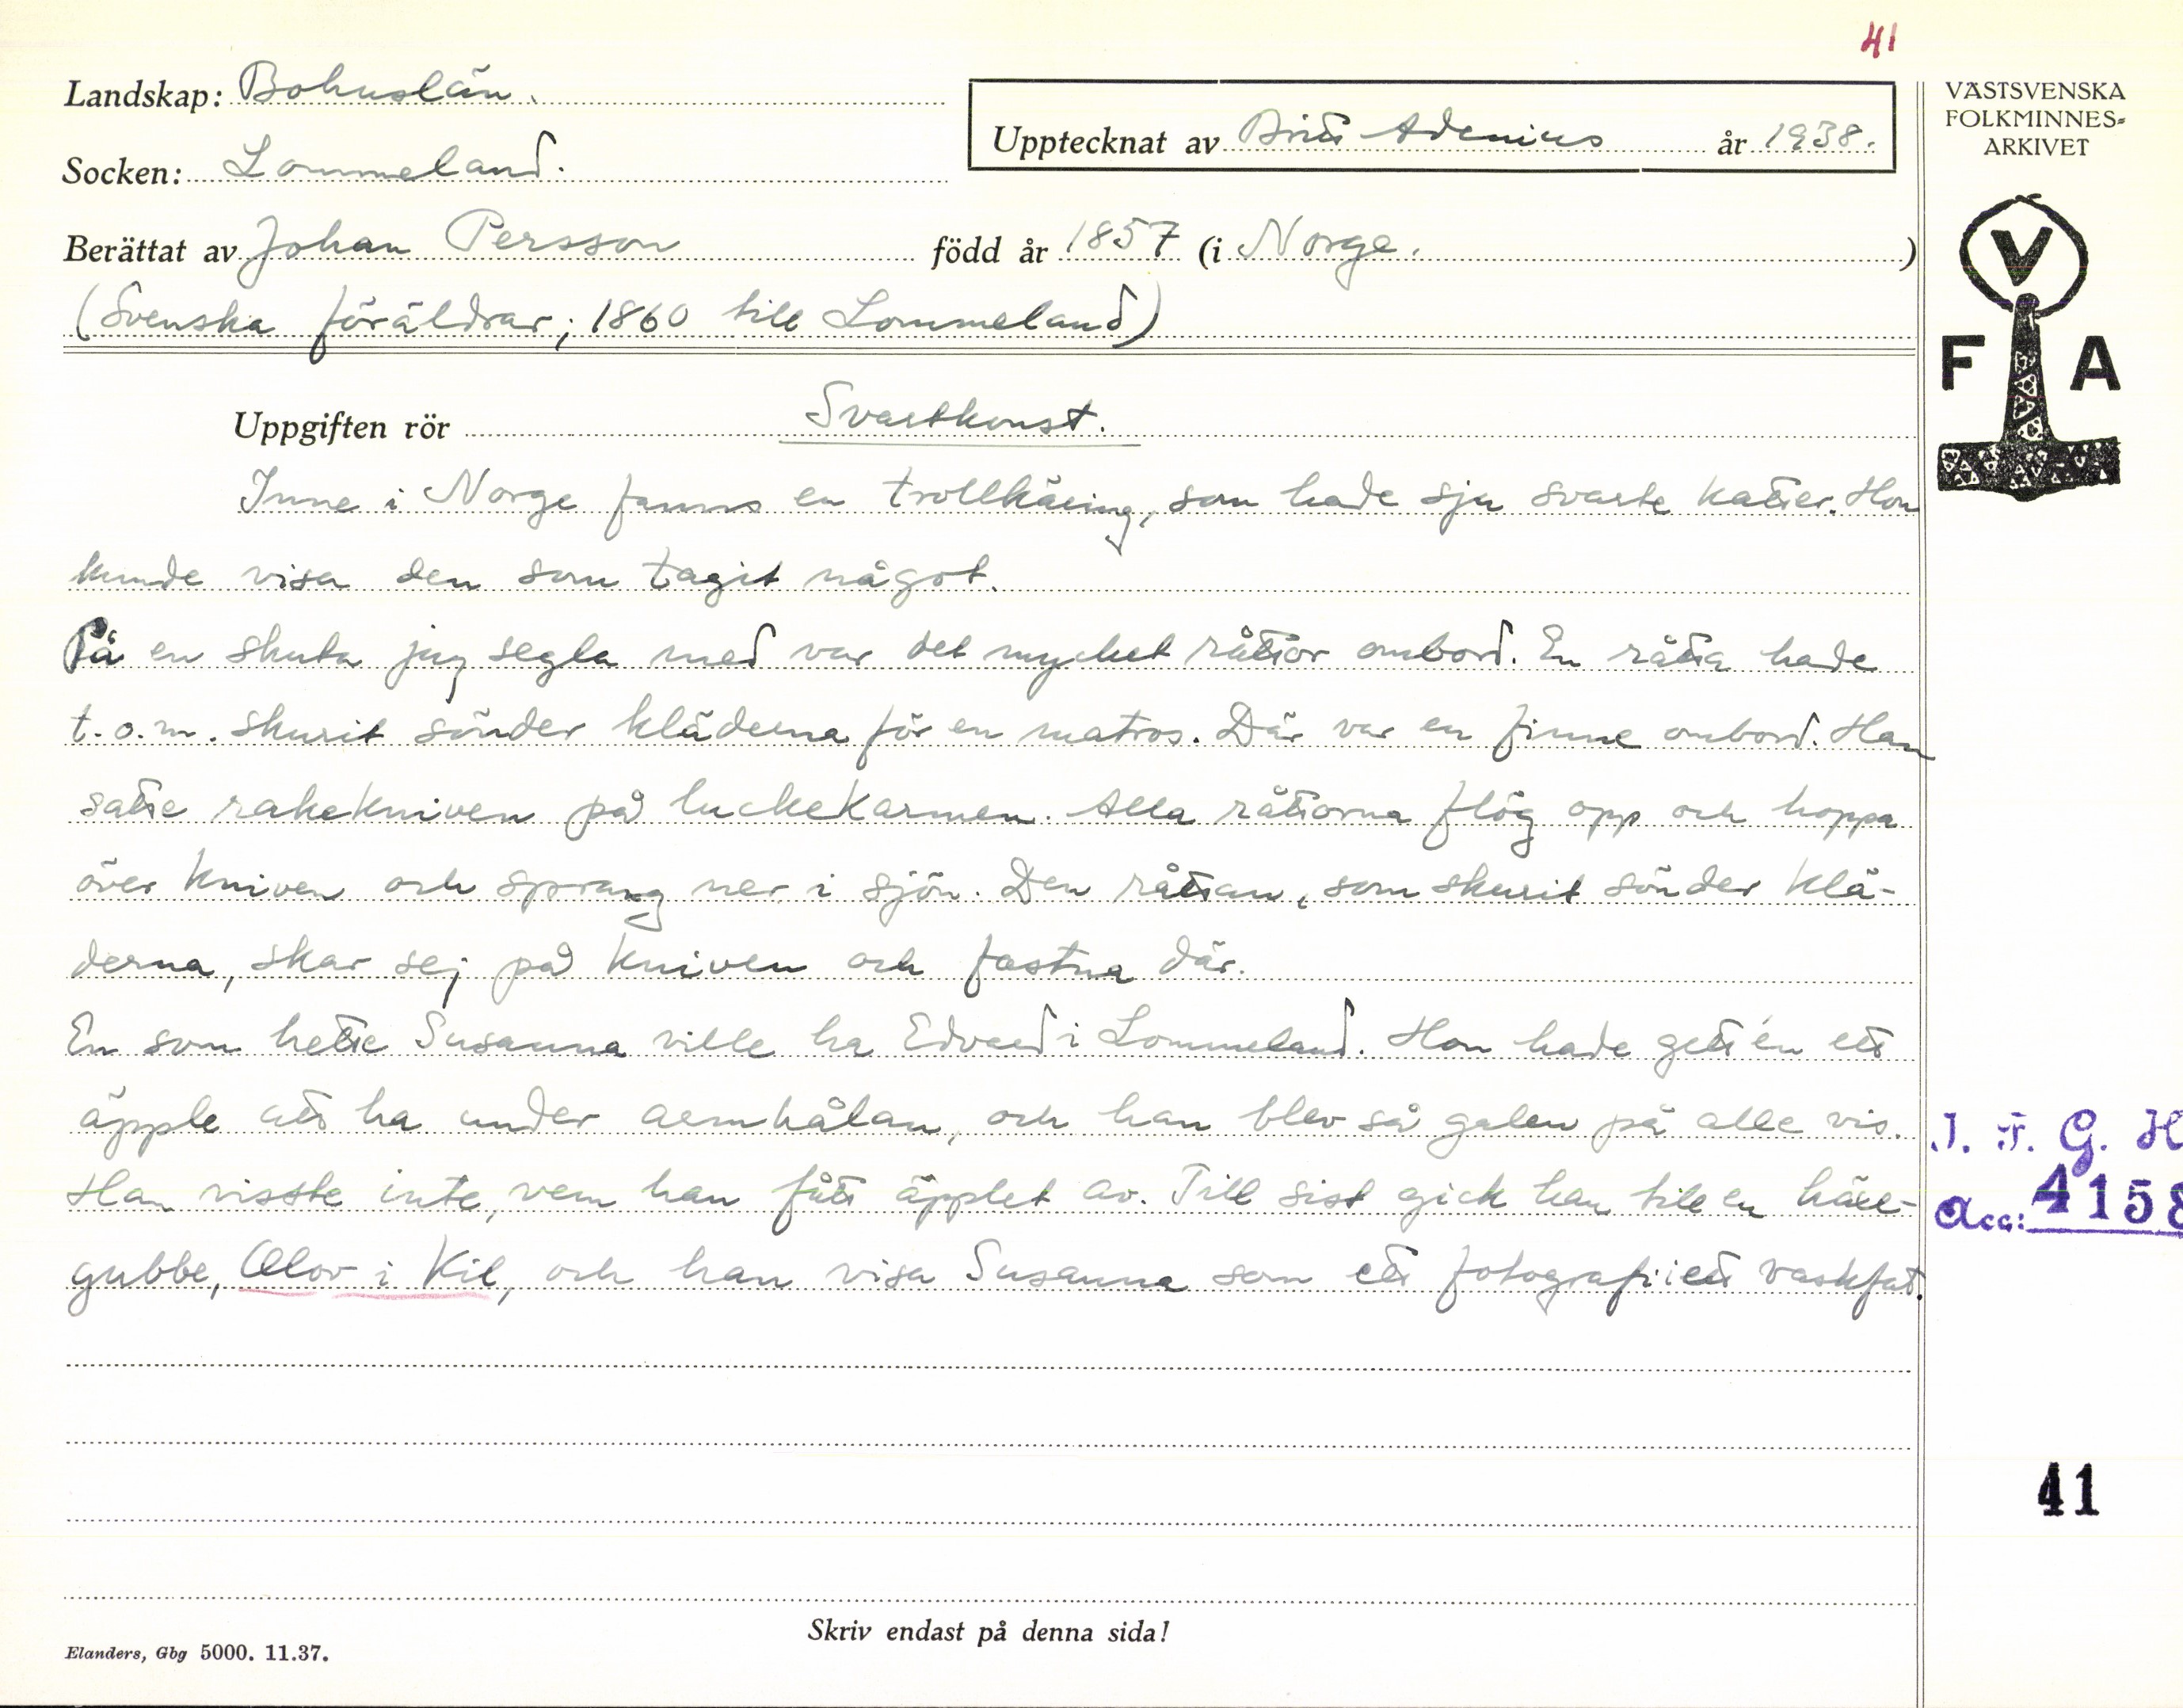 41
Landskap: Bohuslän.
Upptecknat av Britt Adenius år 1938.
Socken: Lommeland.
Berättat av Johan Persson född år 1857 (i Norge.)
(Svenska föräldrar; 1860 till Lommeland)
VÄSTSVENSKA
FOLKMINNES=
ARKIVET
V
F A
Uppgiften rör Svartkonst.
Inne i Norge fanns en trollkäring, som hade sju svarte katter. Hon
kunde visa den som tagit något.
På en skuta jag segla med var det mycket råttor ombord. En råtta hade
t.o.m. skurit sönder kläderna för en matros. Där var en finne ombord. Han
satte rakekniven på luckekarmen. Alla råttorna flög opp och hoppa
över kniven och sprang ner i sjön. Den råttan, som skurit sönder klä-
derna, skar sej på kniven och fastna där.
En som hette Susanna ville ha Edvard i Lommeland. Hon hade gett én ett
äpple att ha under armhålan, och han blev så galen på alle vis.
Han visste inte, vem han fått äpplet av. Till sist gick han till en
gubbe, Olov i Kil, och han visa Susanna som ett fotografi i ett vaskfat.
I. F. G. H
Acc: 4158
41
Skriv endast på denna sida!
Elanders, Gbg 5000. 11.37.